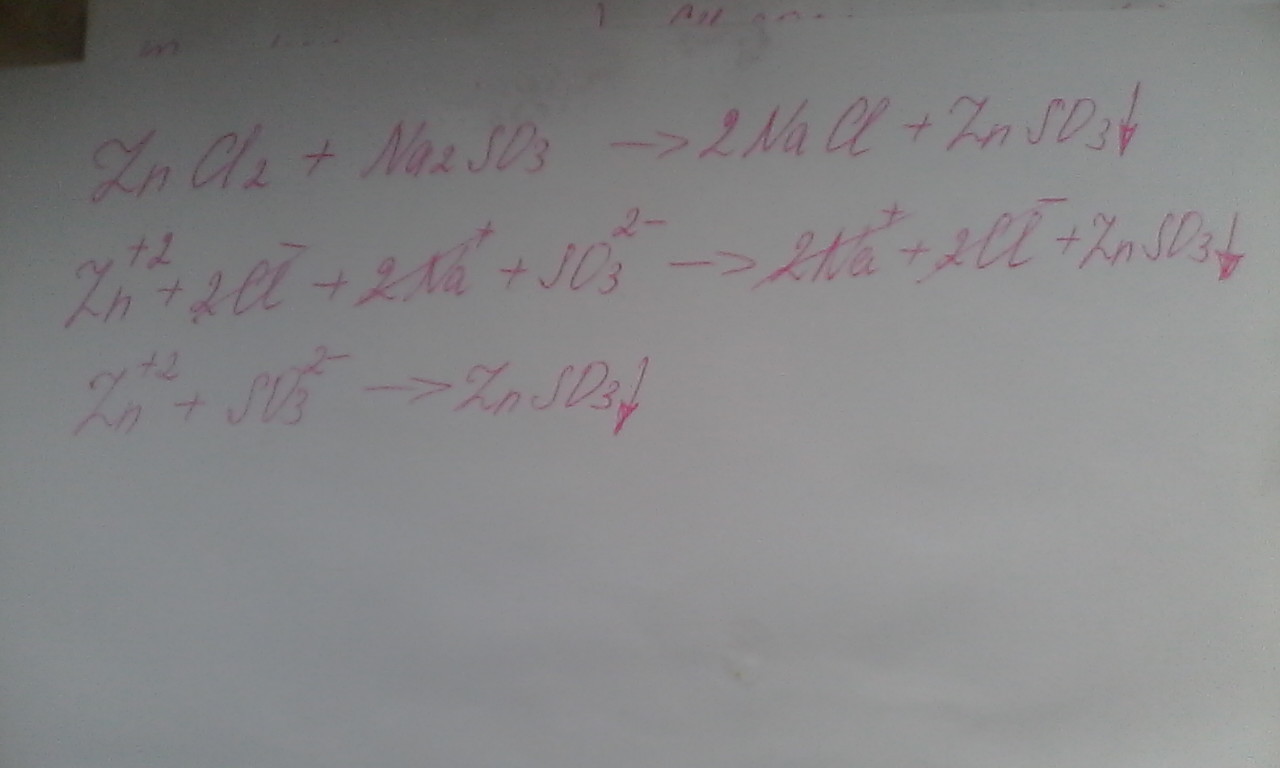 ZnCl₂ + Na₂SO₃ → 2NaCl + ZnSO₃↓
Zn⁺² + 2Cl⁻ + 2Na⁺ + SO₃²⁻ → 2Na⁺ + 2Cl⁻ + ZnSO₃↓
Zn⁺² + SO₃²⁻ → ZnSO₃↓